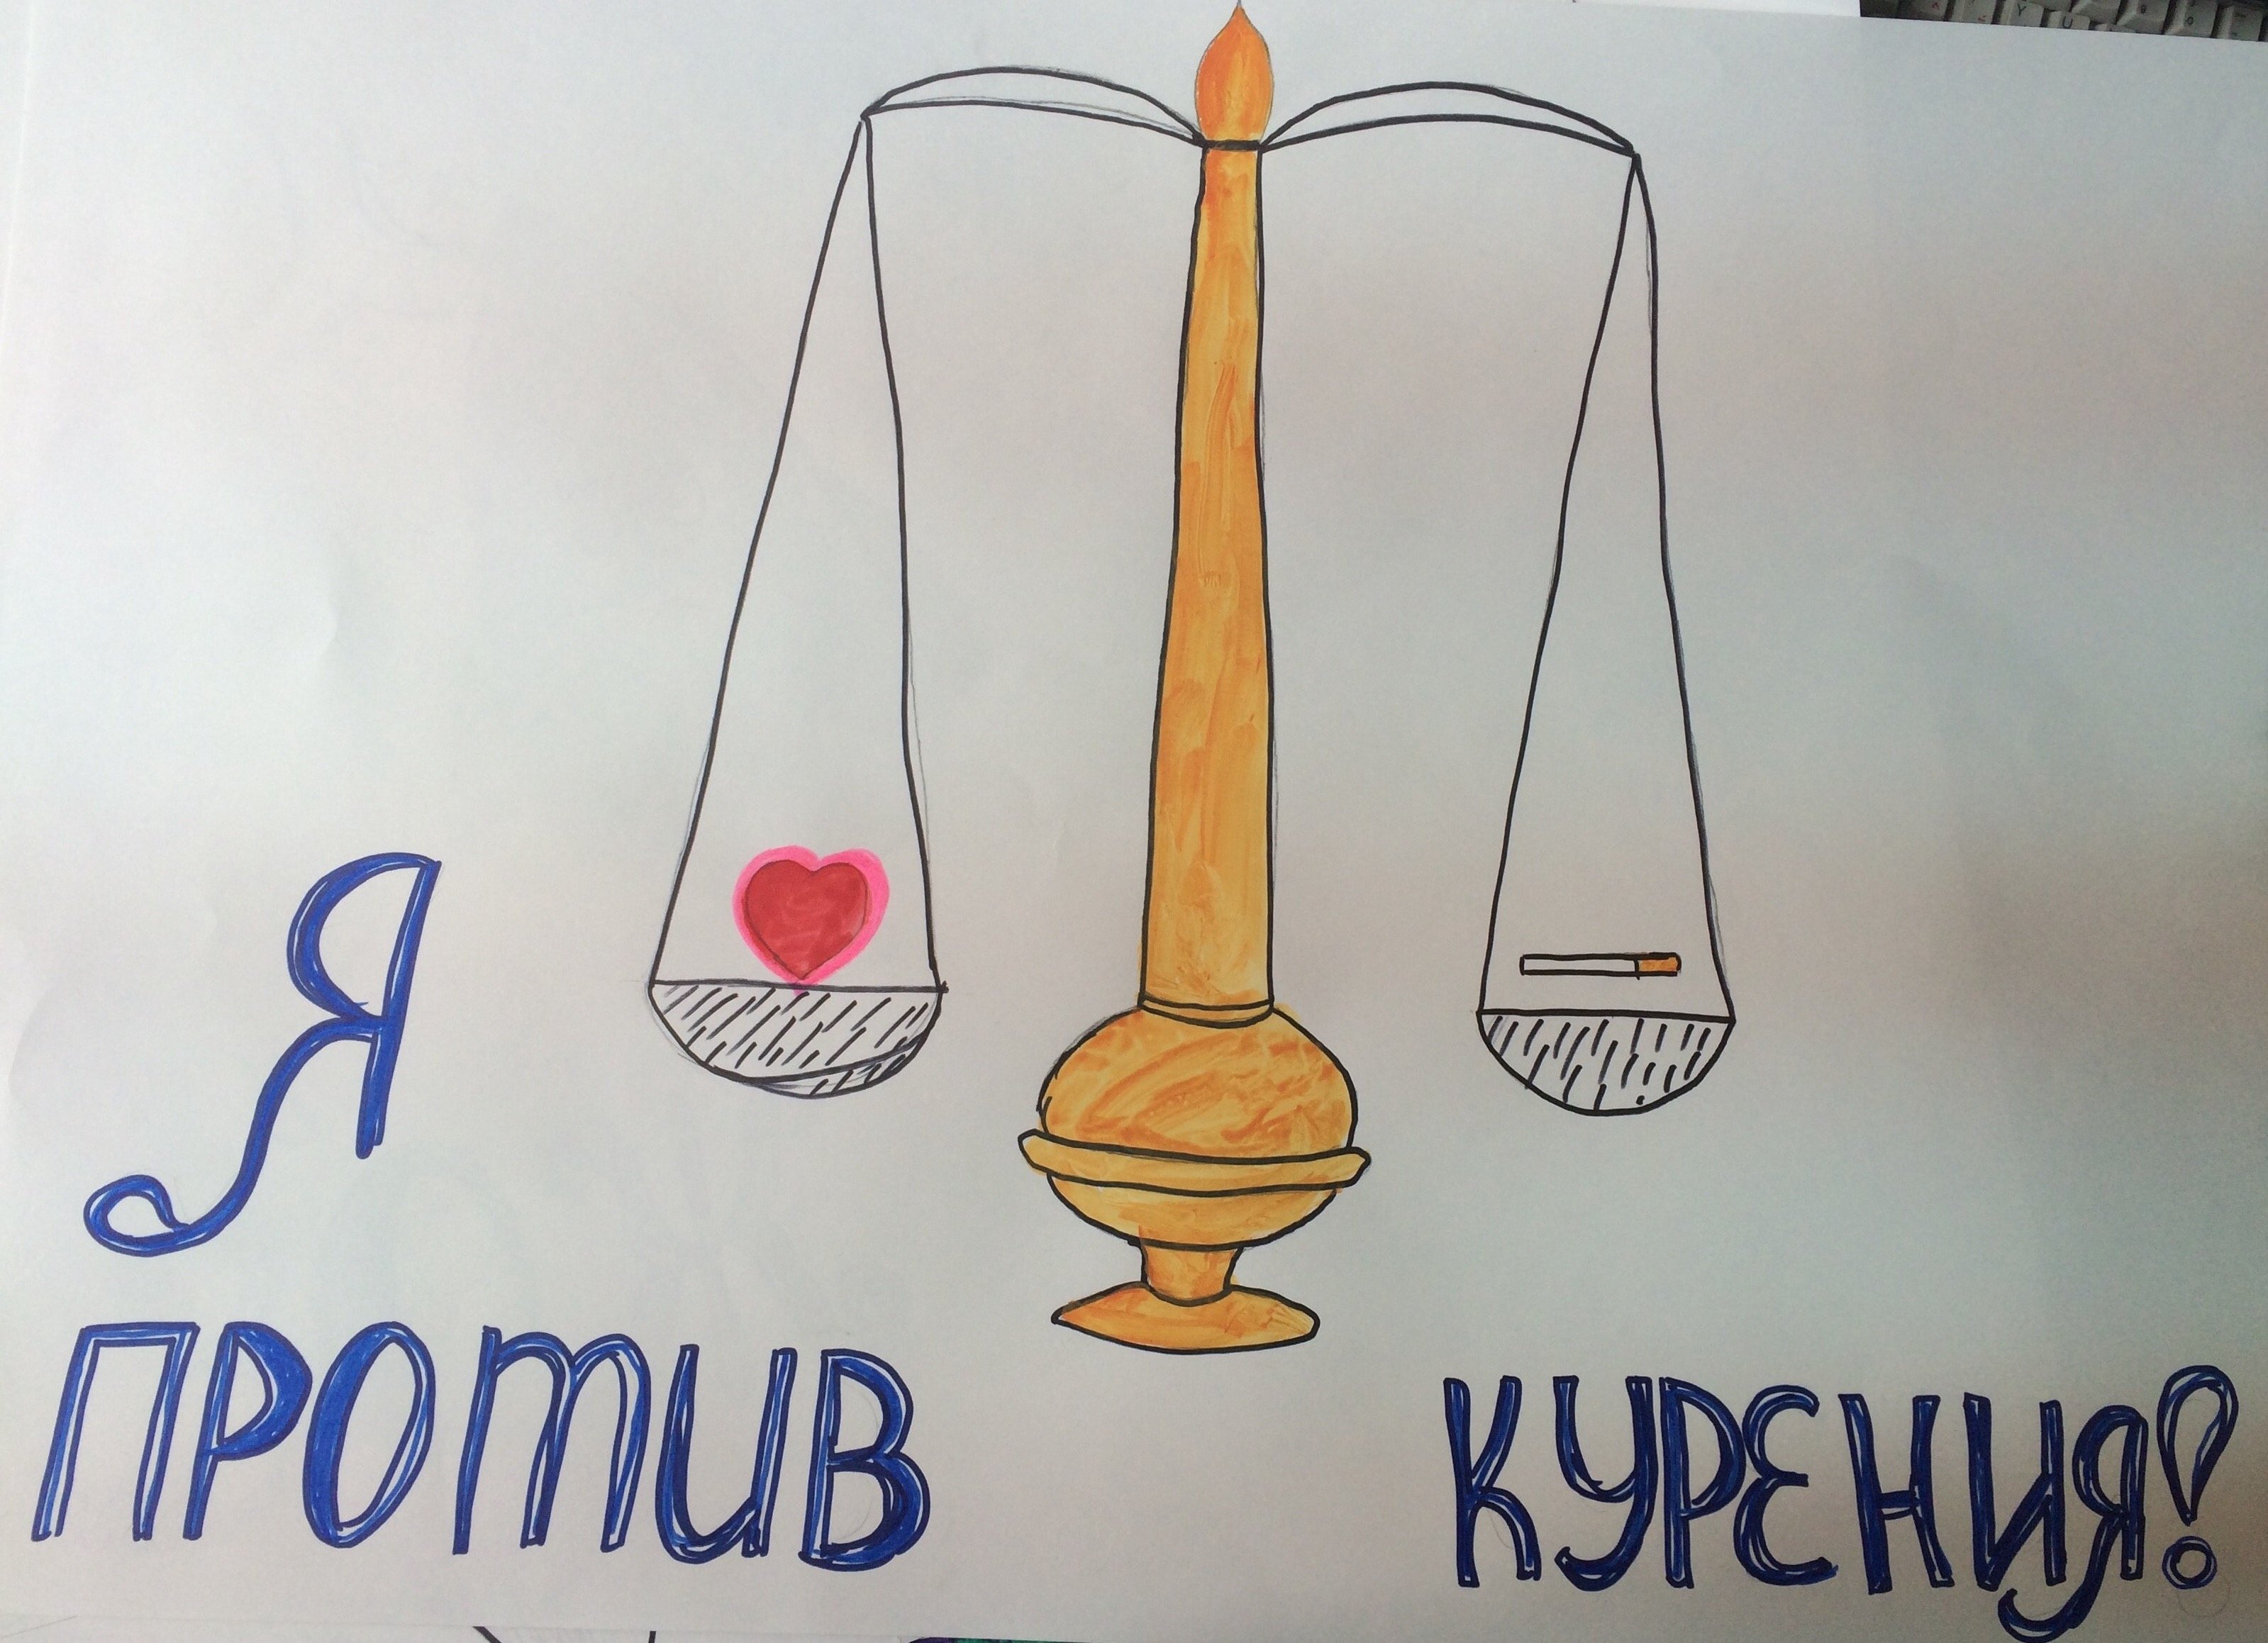 Я
ПРОТИВ
КУРЕНИЯ!